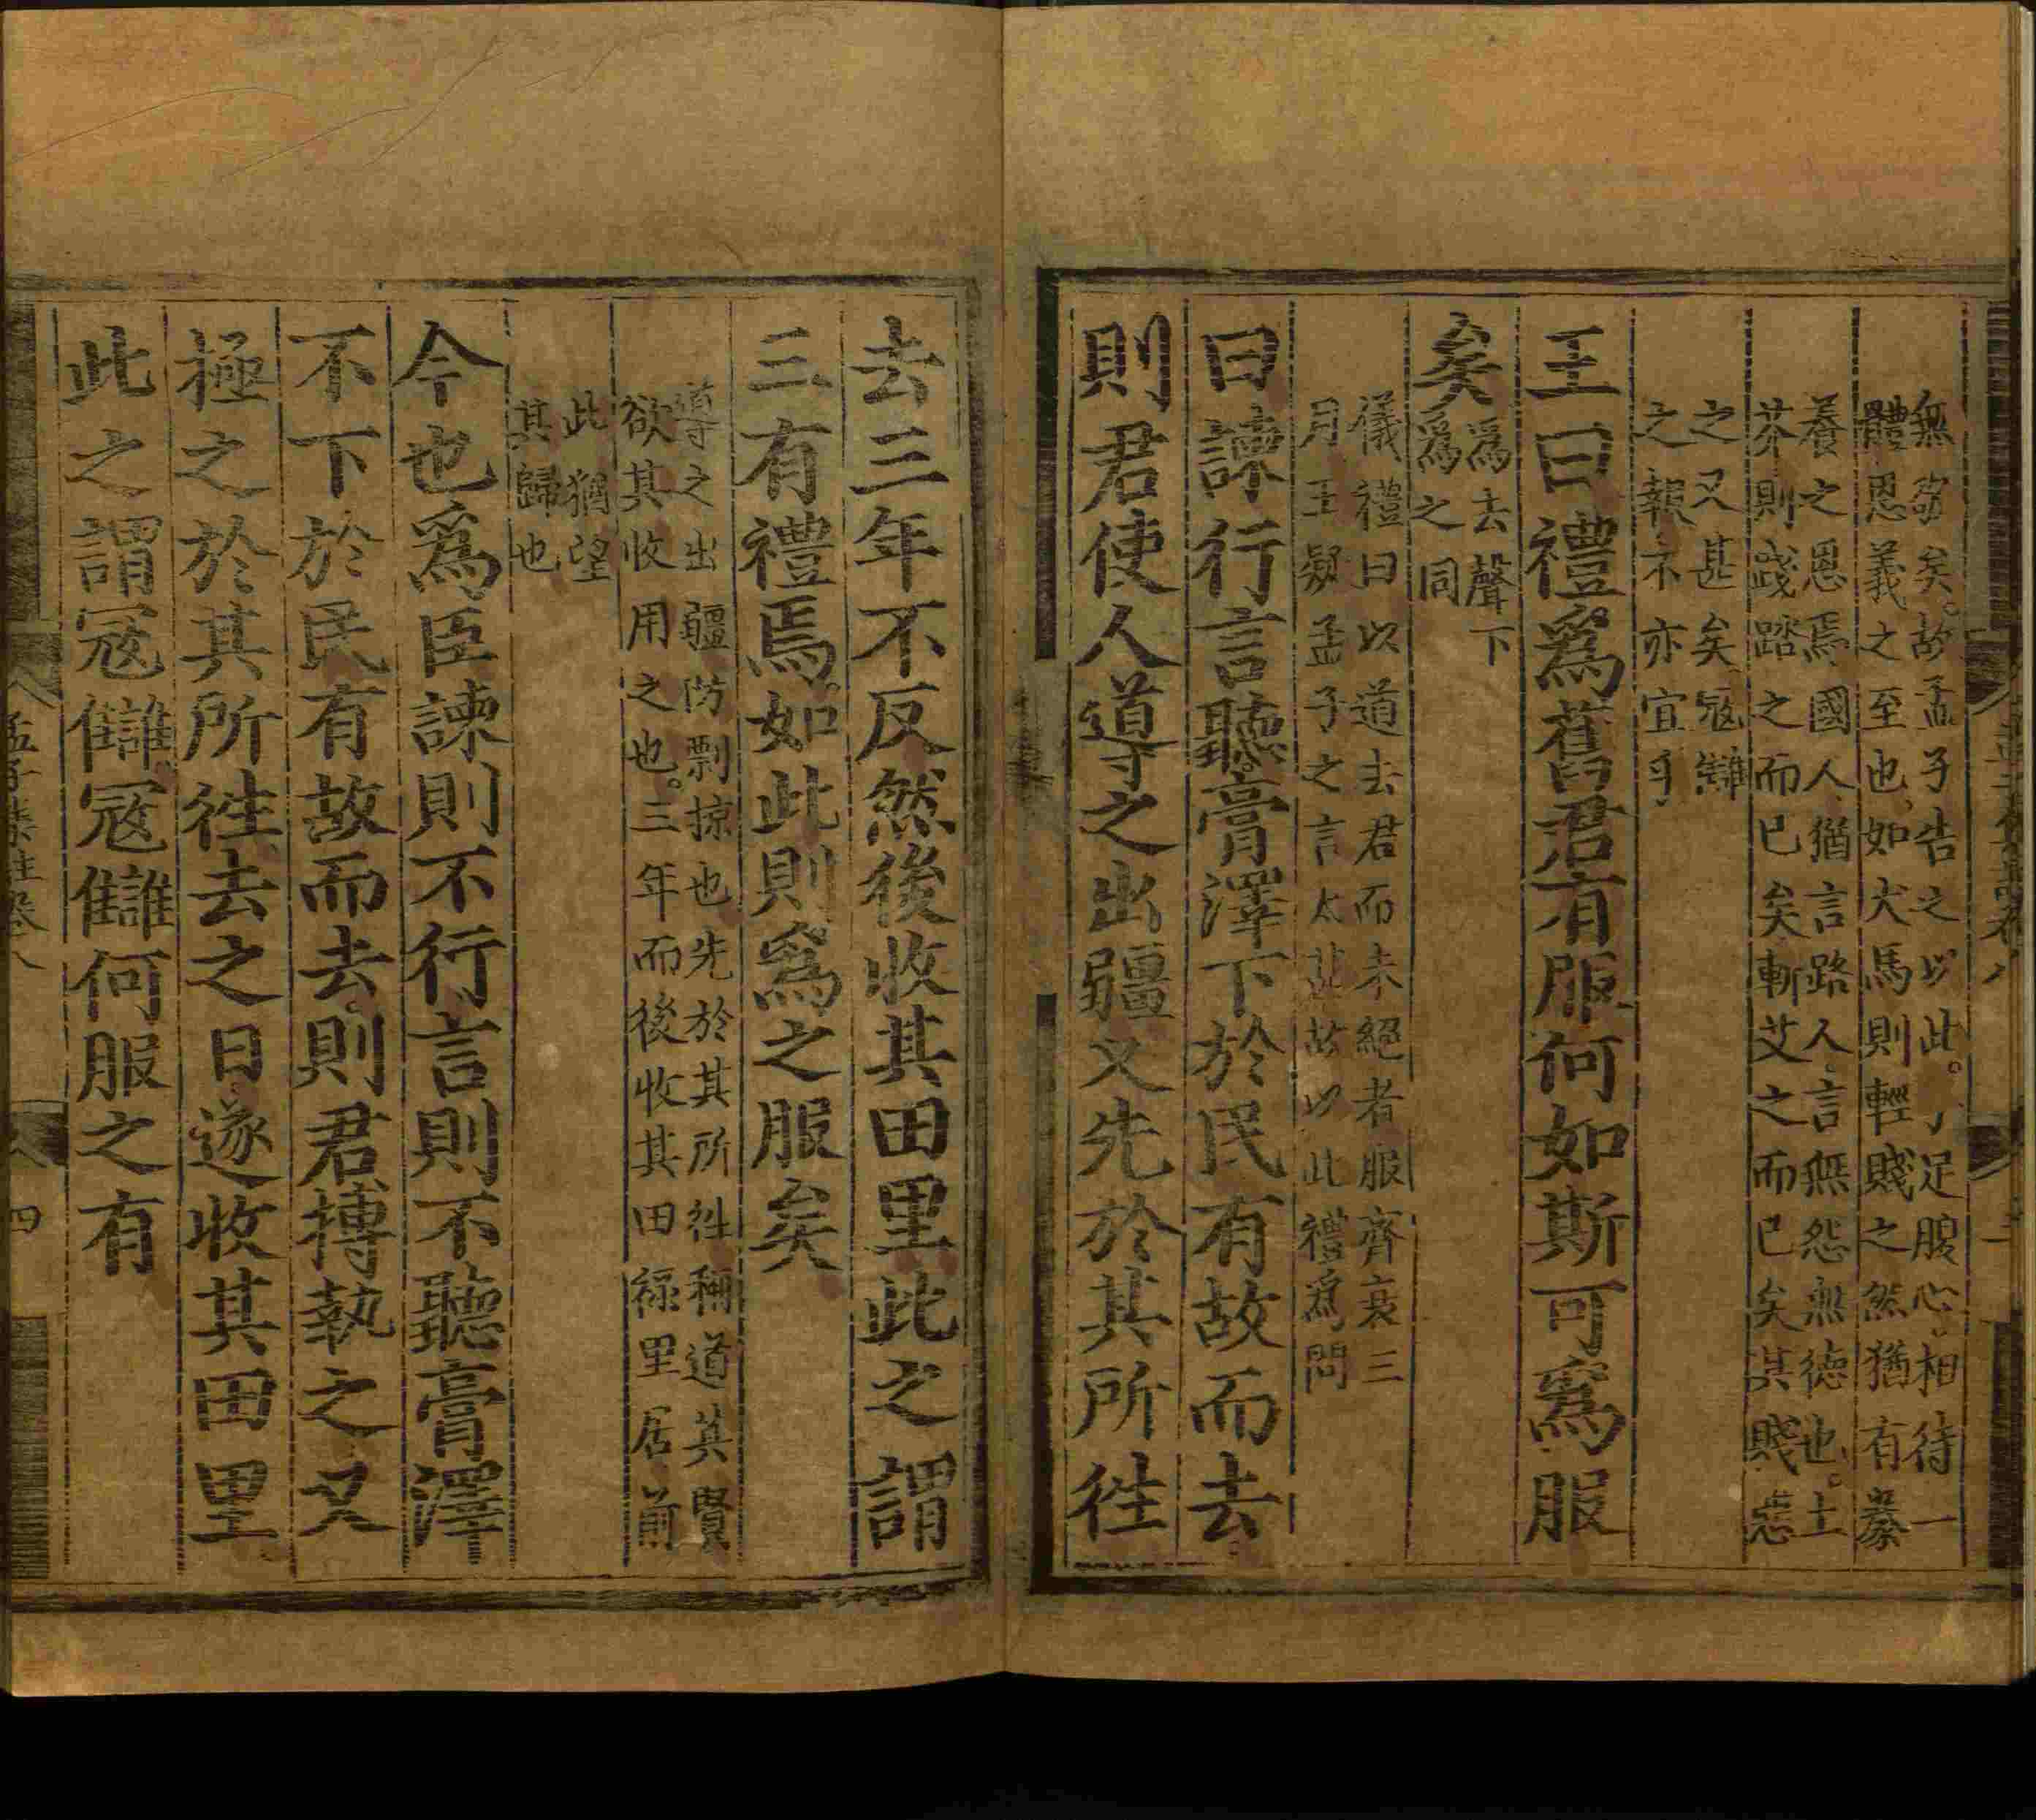 無敬矣故孟子告之以此手足腹心相待一
體恩義之至也如犬馬則輕賤之然猶有豢
養之恩焉國人猶言路人言無怨無德也土
芥則踐踏之而已矣斬艾之而已矣其賤惡
之又甚矣寇讎
之報不亦宜乎
王曰禮爲舊君有服何如斯可爲服
矣
爲去聲下
爲之同
儀禮曰以道去君而未絕者服齊衰三
月王疑孟子之言太甚故以此禮爲問
曰諫行言聽膏澤下於民有故而去
則君使人導之出疆又先於其所往
去三年不反然後收其田里此之謂
三有禮焉如此則爲之服矣
導之出疆防剽掠也先於其所往稱道其賢
欲其收用之也三年而後收其田祿里居前
此猶望
其歸也
今也爲臣諫則不行言則不聽膏澤
不下於民有故而去則君搏執之又
極之於其所往去之日遂收其田里
此之謂寇讎寇讎何服之有
孟子集註卷八
四